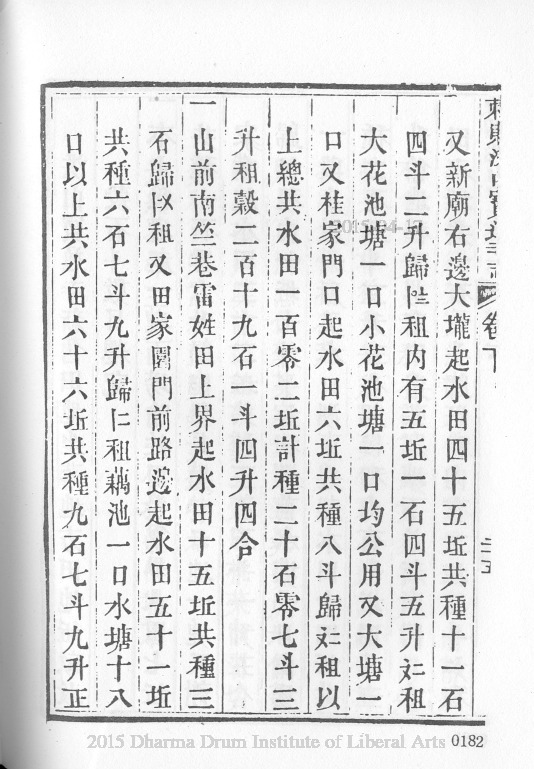 卷下
又新廟右邊大壠起水田四十五坵共種十一石
四斗二升歸 租内有五坵一石四斗五升 租
大花池塘一口小花池塘一口均公用又大塘一
口又桂家門口起水田六坵共種八斗歸 租以
上總共水田一百零二坵計種二十石零七斗三
升租穀二百十九石一斗四升四合
一山前南竺巷雷姓田上界起水田十五坵共種三
石歸 租又田家園門前路邊起水田五十一坵
共種六石七斗九升歸 租藕池一口水塘十八
口以上共水田六十六坵共種九石七斗九升正
2015 Dharma Drum Institute of Liberal Arts 0182